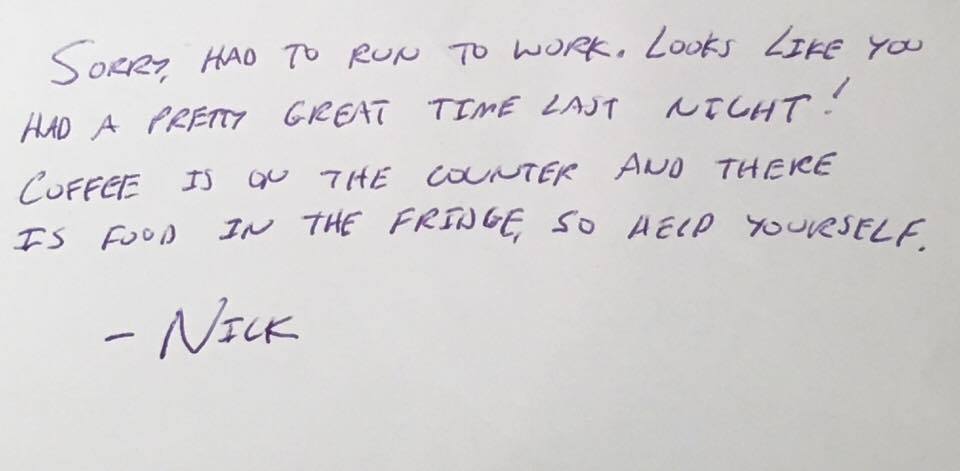 SORRY, HAD TO RUN TO WORK. LOOKS LIKE YOU
HAD A PRETTY GREAT TIME LAST NIGHT!
COFFEE IS ON THE COUNTER AND THERE
IS FOOD IN THE FRINGE, SO HELP YOURSELF.
- NICK